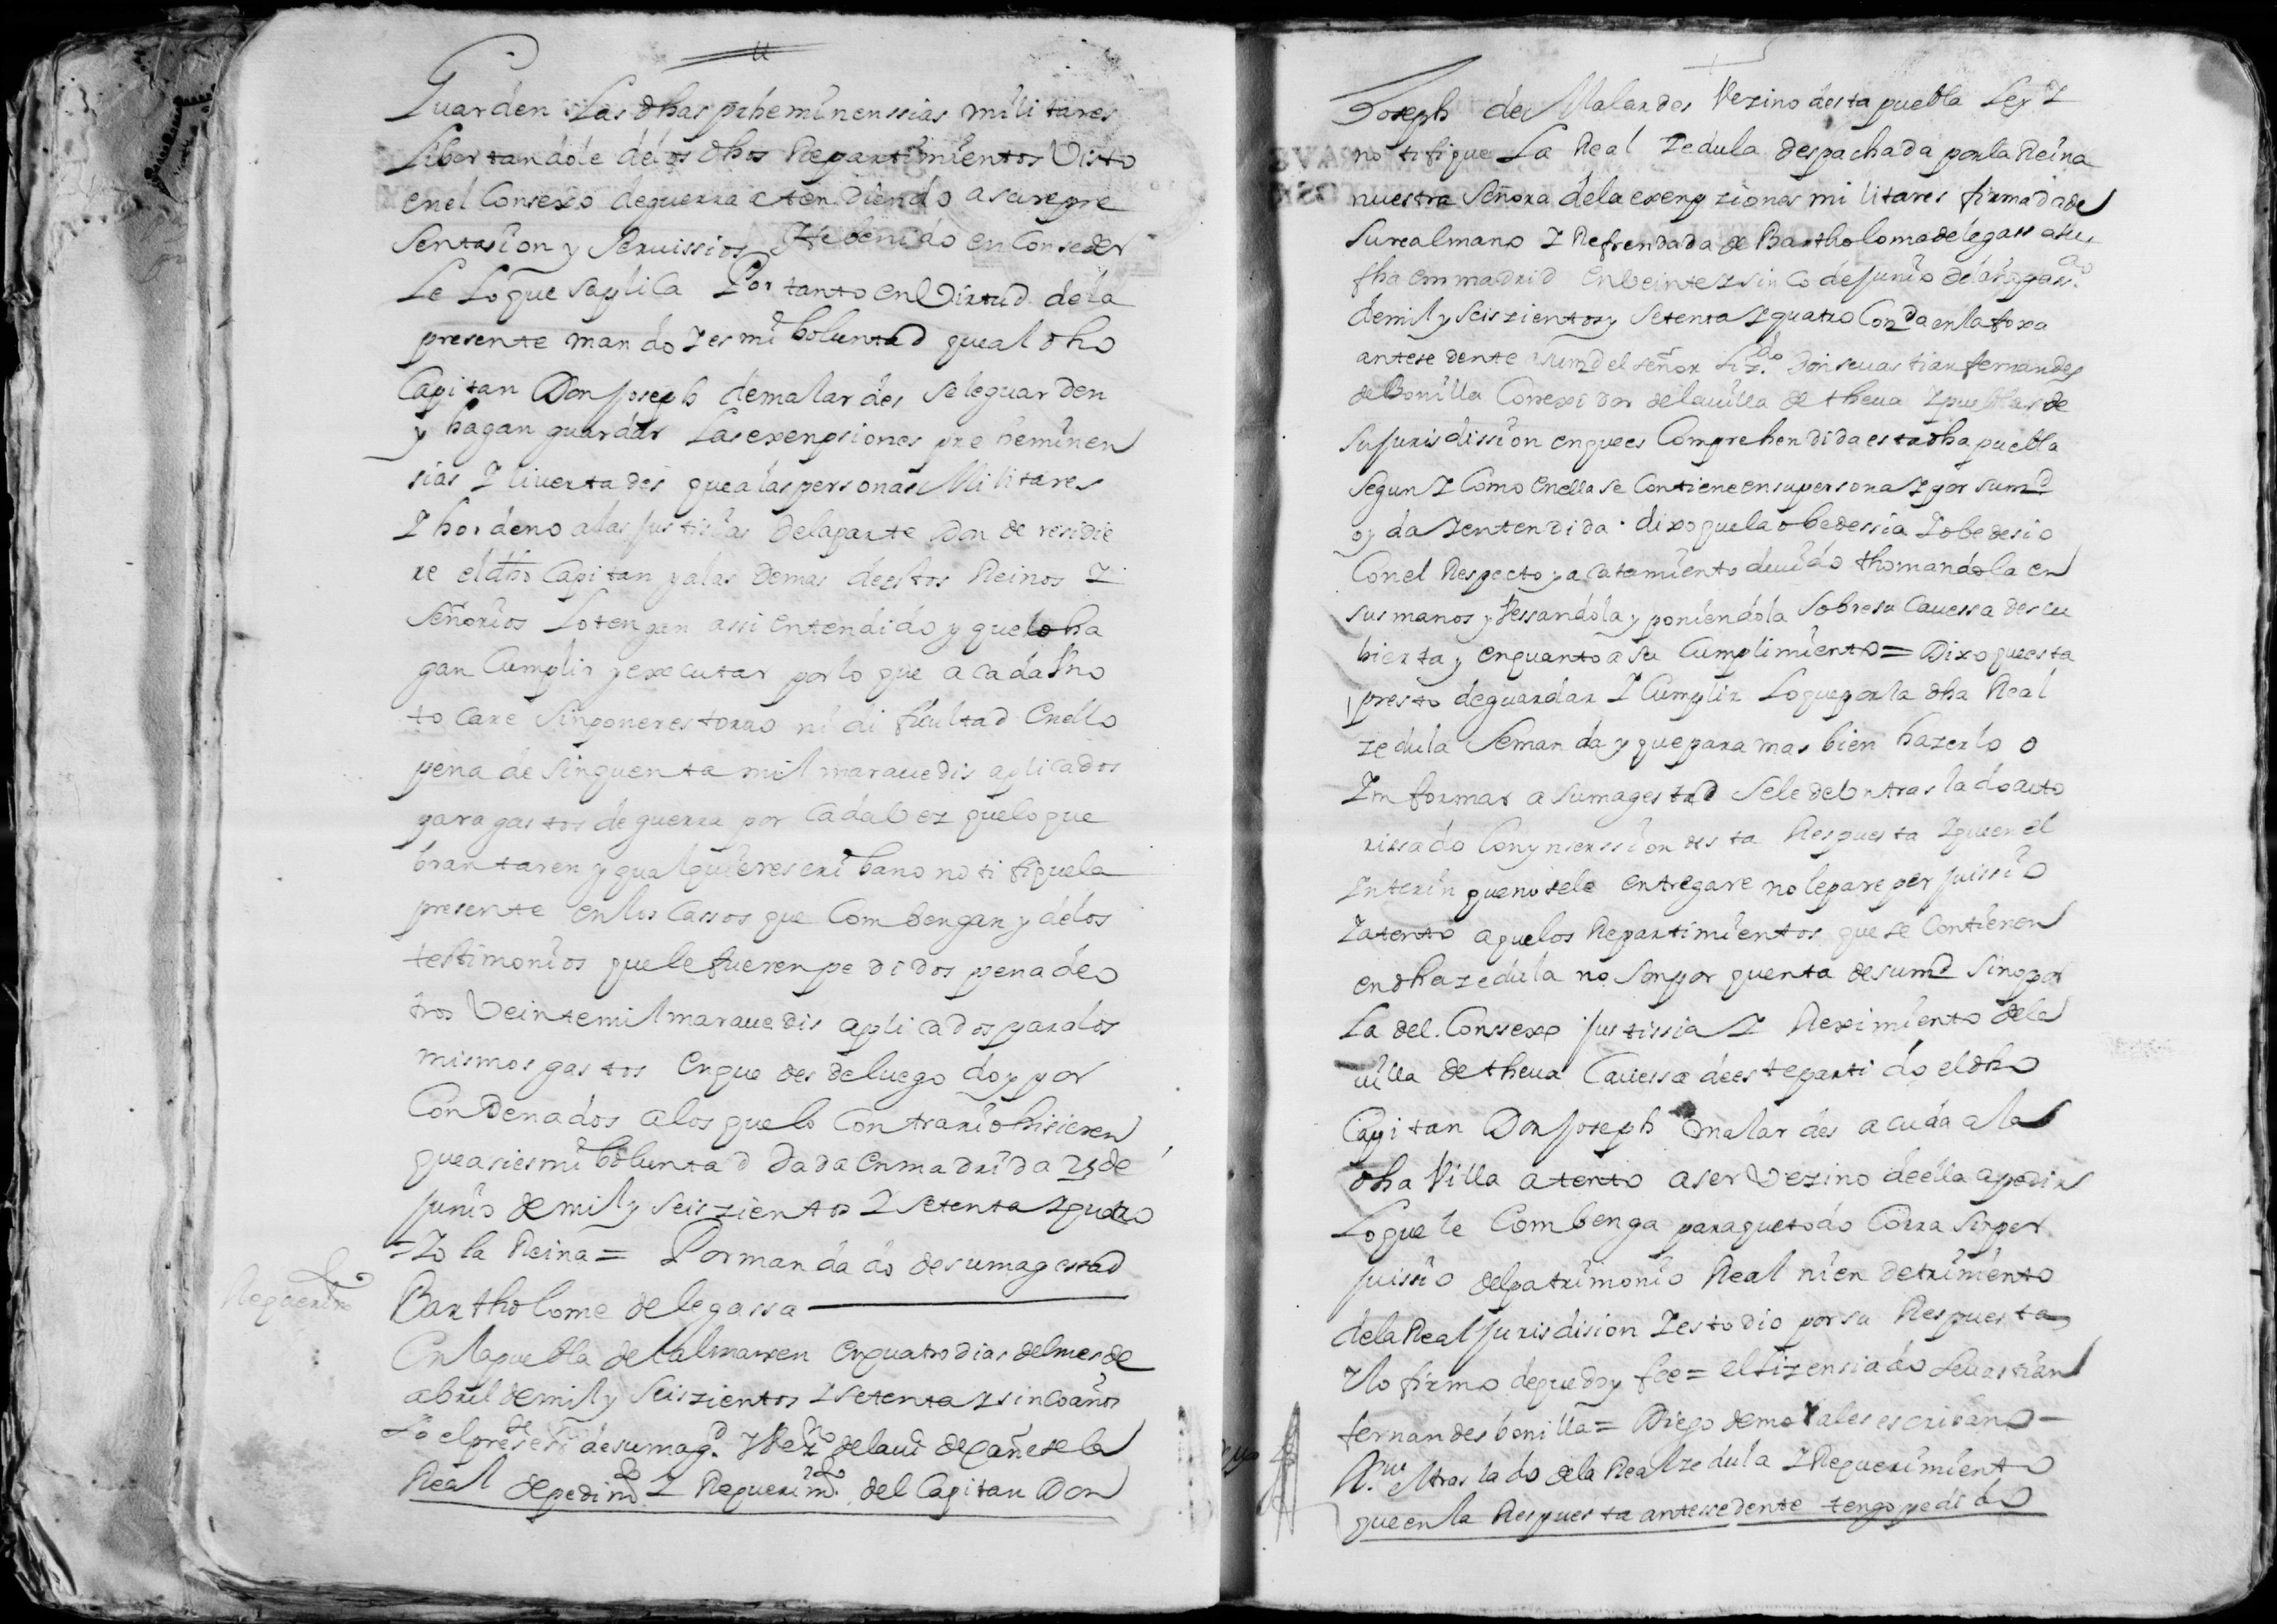 Guarden Las dhas preheminenssias militares
Libertandole de los dhos Repartimientos Visto
en el Consexo de guerra atendiendo a su repre
sentasion y seruissios He benido en Conseder
Le Lo que suplica Por tanto en Virtud de la
presente mando Y es mi boluntad que al dho
Capitan Don Joseph de malardes se le guarden
y hagan guardar Las exenpsiones preheminen
sias Y liuertades que a las personas Militares
Y hordeno a las justisias de la parte donde residie
re el dho Capitan y a las demas de estos Reinos Y
Señorios Lo tengan assi entendido y que lo ha
gan Cumplir y executar por lo que a cada Vno
tocare sin poner estorno ni dificultad en ello
pena de sinquenta mil marauedis aplicados
para gastos de guerra por cada bez que lo que
brantaren y qualquier escribano notifique la
presente en los Cassos que Combengan y de los
testimonios que le fueren pedidos pena de o
tros Veinte mil marauedis aplicados para los
mismos gastos en que desde luego doy por
Condenados a los que lo Contrario hisieren
que asi es mi boluntad Dada en madrid a 25 de
junio de mil y seiszientos Y setenta Y quatro
= Yo la Reina = Por mandado de su magestad
Requerim.to
Bartholome de legassa
En la puebla de talmanxen en quatro dias del mes de
abril de mil y seiszientos Y setenta Y sinco años
Yo el press.te es.no de su mag.d Y Vez.no de la ui.a de Cañete la
Real de pedim.to Y Requerim.to del Capitan Don
Joseph de Malardes Vezino desta puebla Ley Y
notifique La Real Zedula despachada por la Reina
nuestra Señora de la exenpziones militares firmada de
su real mano Y Refrendada de Bartholome de legassa su
fha en madrid en beinte Y sinco de junio del año pas.do
de mil y seiszientos y setenta Y quatro Con.da en la foxa
antesedente a su md del señor Liz.do Don seuastian fernandes
de Bonilla Correxidor de la uilla de theua Y pueblas de
su jurisdission en que es Comprehendida esta dha puebla
Segun Y Como en ella se Contiene en su persona Y por su md
oyda Y entendida dixo que la obedessia Y obedesio
Con el Respecto y acatamiento deuido thomandola en
sus manos y Vessandola y poniendola sobre su cauessa descu
bierta y en quanto a su Cumplimiento = Dixo que esta
presto de guardar Y Cumplir Lo que por la dha Real
zedula se manda y que para mas bien hazerlo o
Ynformar a su magestad se le de Vn traslado auto
rissado Con ynserssion desta Respuesta Y que en el
Ynterin que no se le entregare no le pare perjuissio
Y atento a que los Repartimientos que se Contienen
en dha zedula no son por quenta de su md sino por
La del Consexo justissia Y Reximiento de la
uilla de theua Cauessa de este partido el dho
Capitan Don Joseph malardes acuda a la
dha Villa atento a ser Vezino de ella a pedir
Lo que le Combenga para que todo Corra sin per
juissio del patrimonio Real ni en detrimento
de la Real jurisdision Y esto dio por su Respuesta
Y lo firmo de que doy fee = el lizensiado seuastian
fernandes bonilla = Diego de morales escribano
traslado de la Real zedula Y Requerimiento
que en la Respuesta antessedente tengo pedido